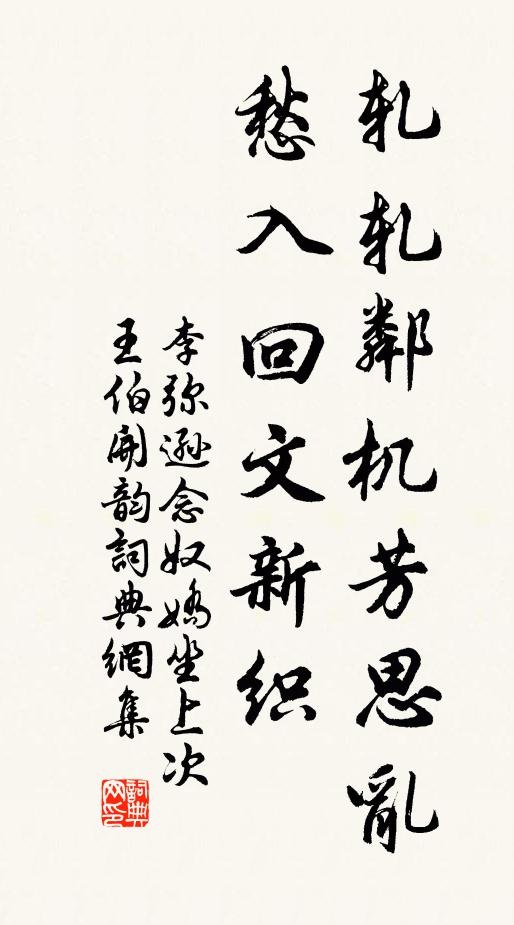 轧轧鄰机芳思亂
愁入回文新织
李弥遜念奴嬌坐上次
王伯開韵詞典網集
詞典网印